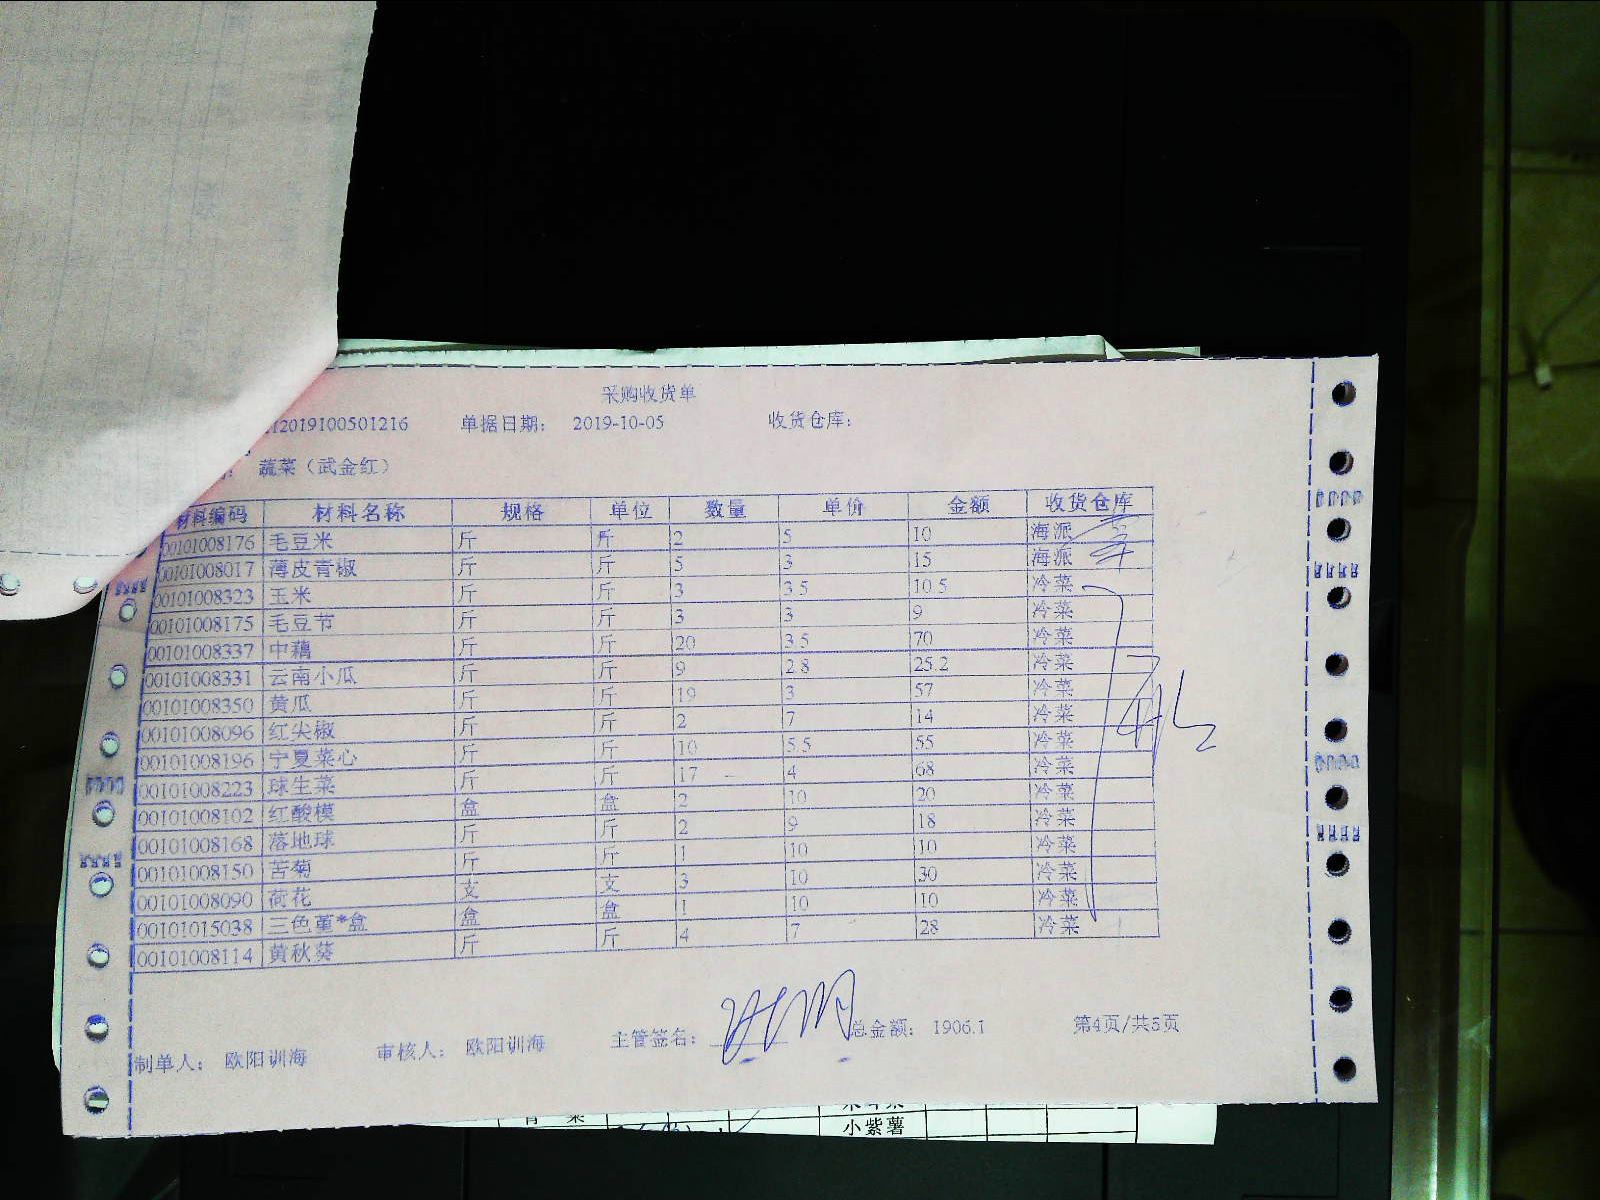 采购收货单
12019100501216 单据日期: 2019-10-05 收货仓库:
蔬菜（武金红）
材料编码 材料名称 规格 单位 数量 单价 金额 收货仓库
00101008176 毛豆米 斤 斤 2 5 10 海派
00101008017 薄皮青椒 斤 斤 5 3 15 海派
00101008323 玉米 斤 斤 3 3.5 10.5 冷菜
00101008175 毛豆节 斤 斤 3 3 9 冷菜
00101008337 中藕 斤 斤 20 3.5 70 冷菜
00101008331 云南小瓜 斤 斤 9 2.8 25.2 冷菜
00101008350 黄瓜 斤 斤 19 3 57 冷菜
00101008096 红尖椒 斤 斤 2 7 14 冷菜
00101008196 宁夏菜心 斤 斤 10 5.5 55 冷菜
00101008223 球生菜 斤 斤 17 4 68 冷菜
00101008102 红酸模 盒 盒 2 10 20 冷菜
00101008168 落地球 斤 斤 2 9 18 冷菜
00101008150 苦菊 斤 斤 1 10 10 冷菜
00101008090 荷花 支 支 3 10 30 冷菜
00101015038 三色堇*盒 盒 盒 1 10 10 冷菜
00101008114 黄秋葵 斤 斤 4 7 28 冷菜
制单人: 欧阳训海 审核人: 欧阳训海 主管签名: 总金额: 1906.1 第4页/共5页
小紫薯